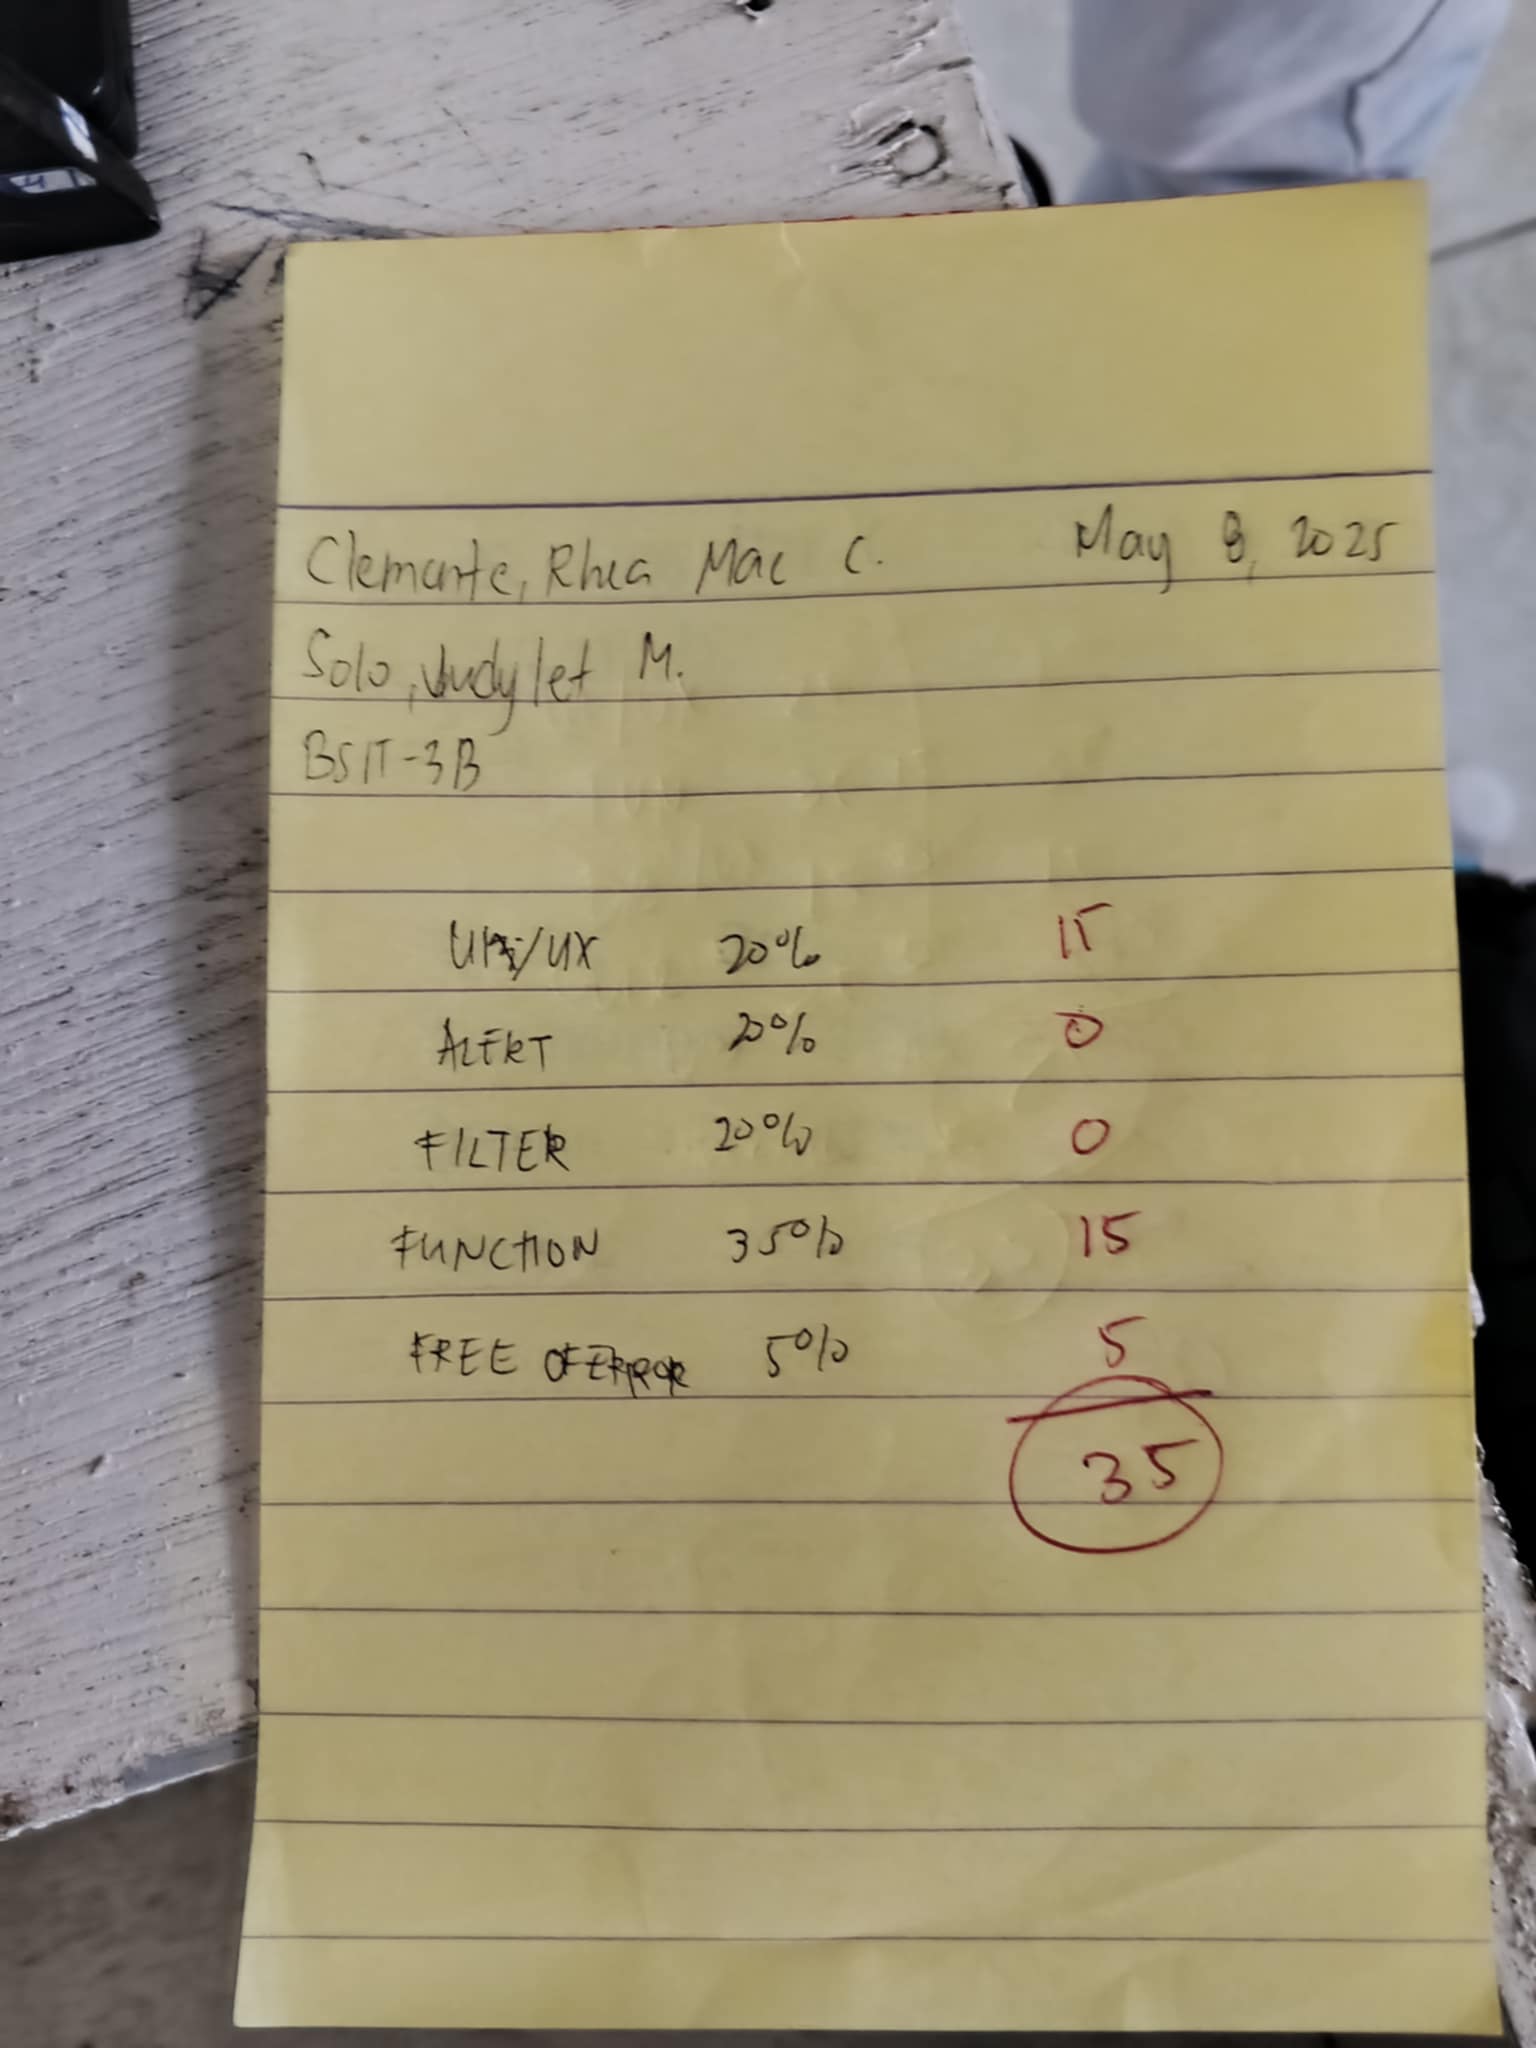 Clemente, Rhea Mae C. May 8, 2025
Solo, Judylet M.
BSIT-3B
UI/UX 20% 15
ALERT 20% 0
FILTER 20% 0
FUNCTION 35% 15
FREE OF ERROR 5% 5
35